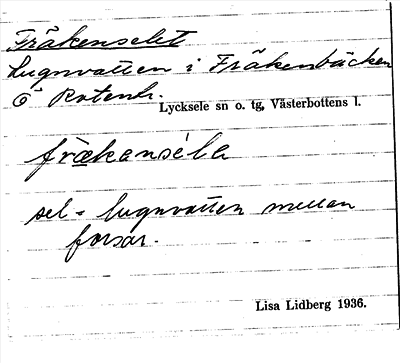 Fräkenselet
Lugnvatten i Fräkenbäcken
Ö Rotentr.
Lycksele sn o. tg, Västerbottens l.
fræ̀kansèle
sel = lugnvatten mellan
forsar.
Lisa Lidberg 1936.